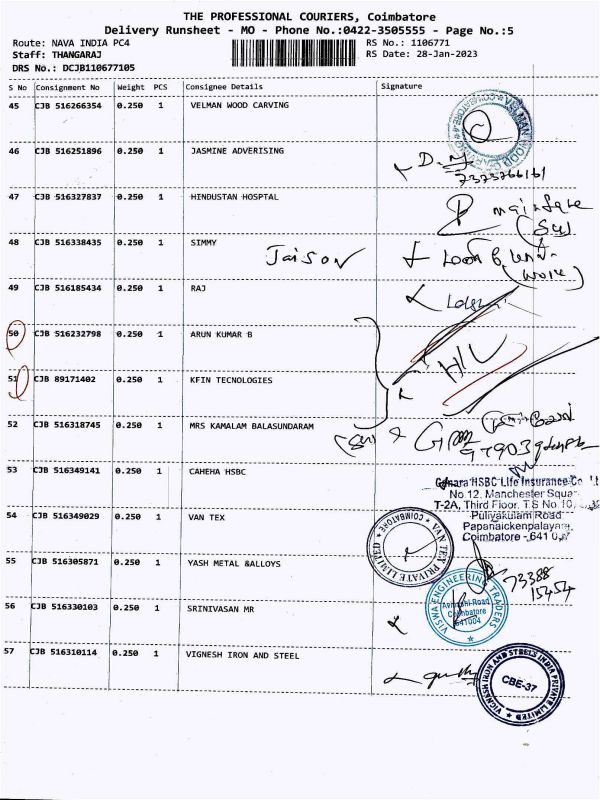 THE PROFESSIONAL COURIERS, Coimbatore
Delivery Runsheet - MO - Phone No.:0422-3505555 - Page No.:5
Route: NAVA INDIA PC4 RS No.: 1106771
Staff: THANGARAJ RS Date: 28-Jan-2023
DRS No.: DCJB110677105
S No Consignment No Weight PCS Consignee Details Signature
45 CJB 516266354 0.250 1 VELMAN WOOD CARVING
46 CJB 516251896 0.250 1 JASMINE ADVERISING
7373766161
47 CJB 516327837 0.250 1 HINDUSTAN HOSPTAL
48 CJB 516338435 0.250 1 SIMMY
Jaison
49 CJB 516185434 0.250 1 RAJ
50 CJB 516232798 0.250 1 ARUN KUMAR B
H/L
51 CJB 89171402 0.250 1 KFIN TECNOLOGIES
52 CJB 516318745 0.250 1 MRS KAMALAM BALASUNDARAM
53 CJB 516349141 0.250 1 CAHEHA HSBC
Canara HSBC Life Insurance Co
No 12, Manchester Squar
T-2A, Third Floor, T.S No 10,
Puliyakulam Road
Papanaickenpalayam,
Coimbatore - 641 0
54 CJB 516349029 0.250 1 VAN TEX
VAN TEX PRIVATE LIMITED COIMBATORE
55 CJB 516305871 0.250 1 YASH METAL &ALLOYS
73388
15454
56 CJB 516330103 0.250 1 SRINIVASAN MR
VISWA ENGINEERING TRADERS
Avinashi Road
Coimbatore
641004
57 CJB 516310114 0.250 1 VIGNESH IRON AND STEEL
VIGNESH IRON AND STEELS INDIA PRIVATE LIMITED
CBE-37